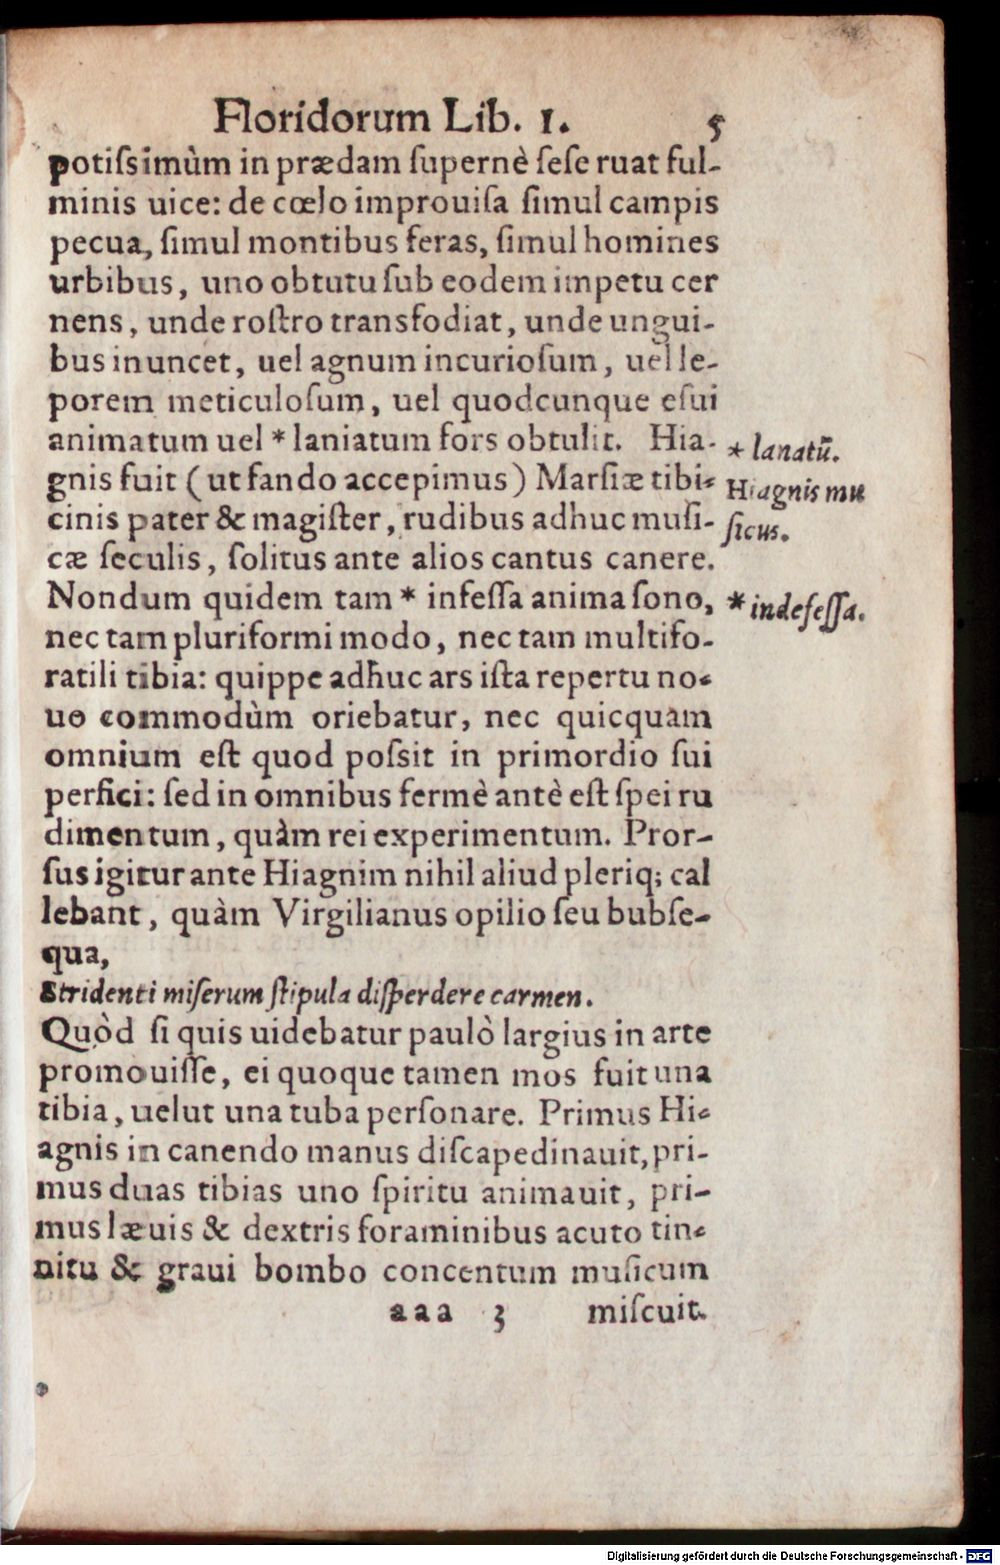 Floridorum Lib. I. 5
potiſsimùm in prædam ſupernè ſeſe ruat ful-
minis uice: de cœlo improuiſa ſimul campis
pecua, ſimul montibus feras, ſimul homines
urbibus, uno obtutu ſub eodem impetu cer
nens, unde roſtro transfodiat, unde ungui-
bus inuncet, uel agnum incurioſum, uel le-
porem meticuloſum, uel quodcunque eſui
animatum uel * laniatum fors obtulit. Hia-
* lanatũ.
gnis fuit (ut fando accepimus) Marſiæ tibi-
Hiagnis mu
cinis pater & magiſter, rudibus adhuc muſi-
ſicus.
cæ ſeculis, ſolitus ante alios cantus canere.
Nondum quidem tam * infeſſa anima ſono,
* indefeſſa.
nec tam pluriformi modo, nec tam multifo-
ratili tibia: quippe adhuc ars iſta repertu no-
uo commodùm oriebatur, nec quicquam
omnium eſt quod poſsit in primordio ſui
perfici: ſed in omnibus fermè antè eſt ſpei ru
dimentum, quàm rei experimentum. Pror-
ſus igitur ante Hiagnim nihil aliud pleriq; cal
lebant, quàm Virgilianus opilio ſeu bubſe-
qua,
Stridenti miſerum ſtipula diſperdere carmen.
Quòd ſi quis uidebatur paulò largius in arte
promouiſſe, ei quoque tamen mos fuit una
tibia, uelut una tuba perſonare. Primus Hi-
agnis in canendo manus diſcapedinauit, pri-
mus duas tibias uno ſpiritu animauit, pri-
mus læuis & dextris foraminibus acuto tin-
nitu & graui bombo concentum muſicum
aaa 3 miſcuit.
Digitalisierung gefördert durch die Deutsche Forschungsgemeinschaft - DFG